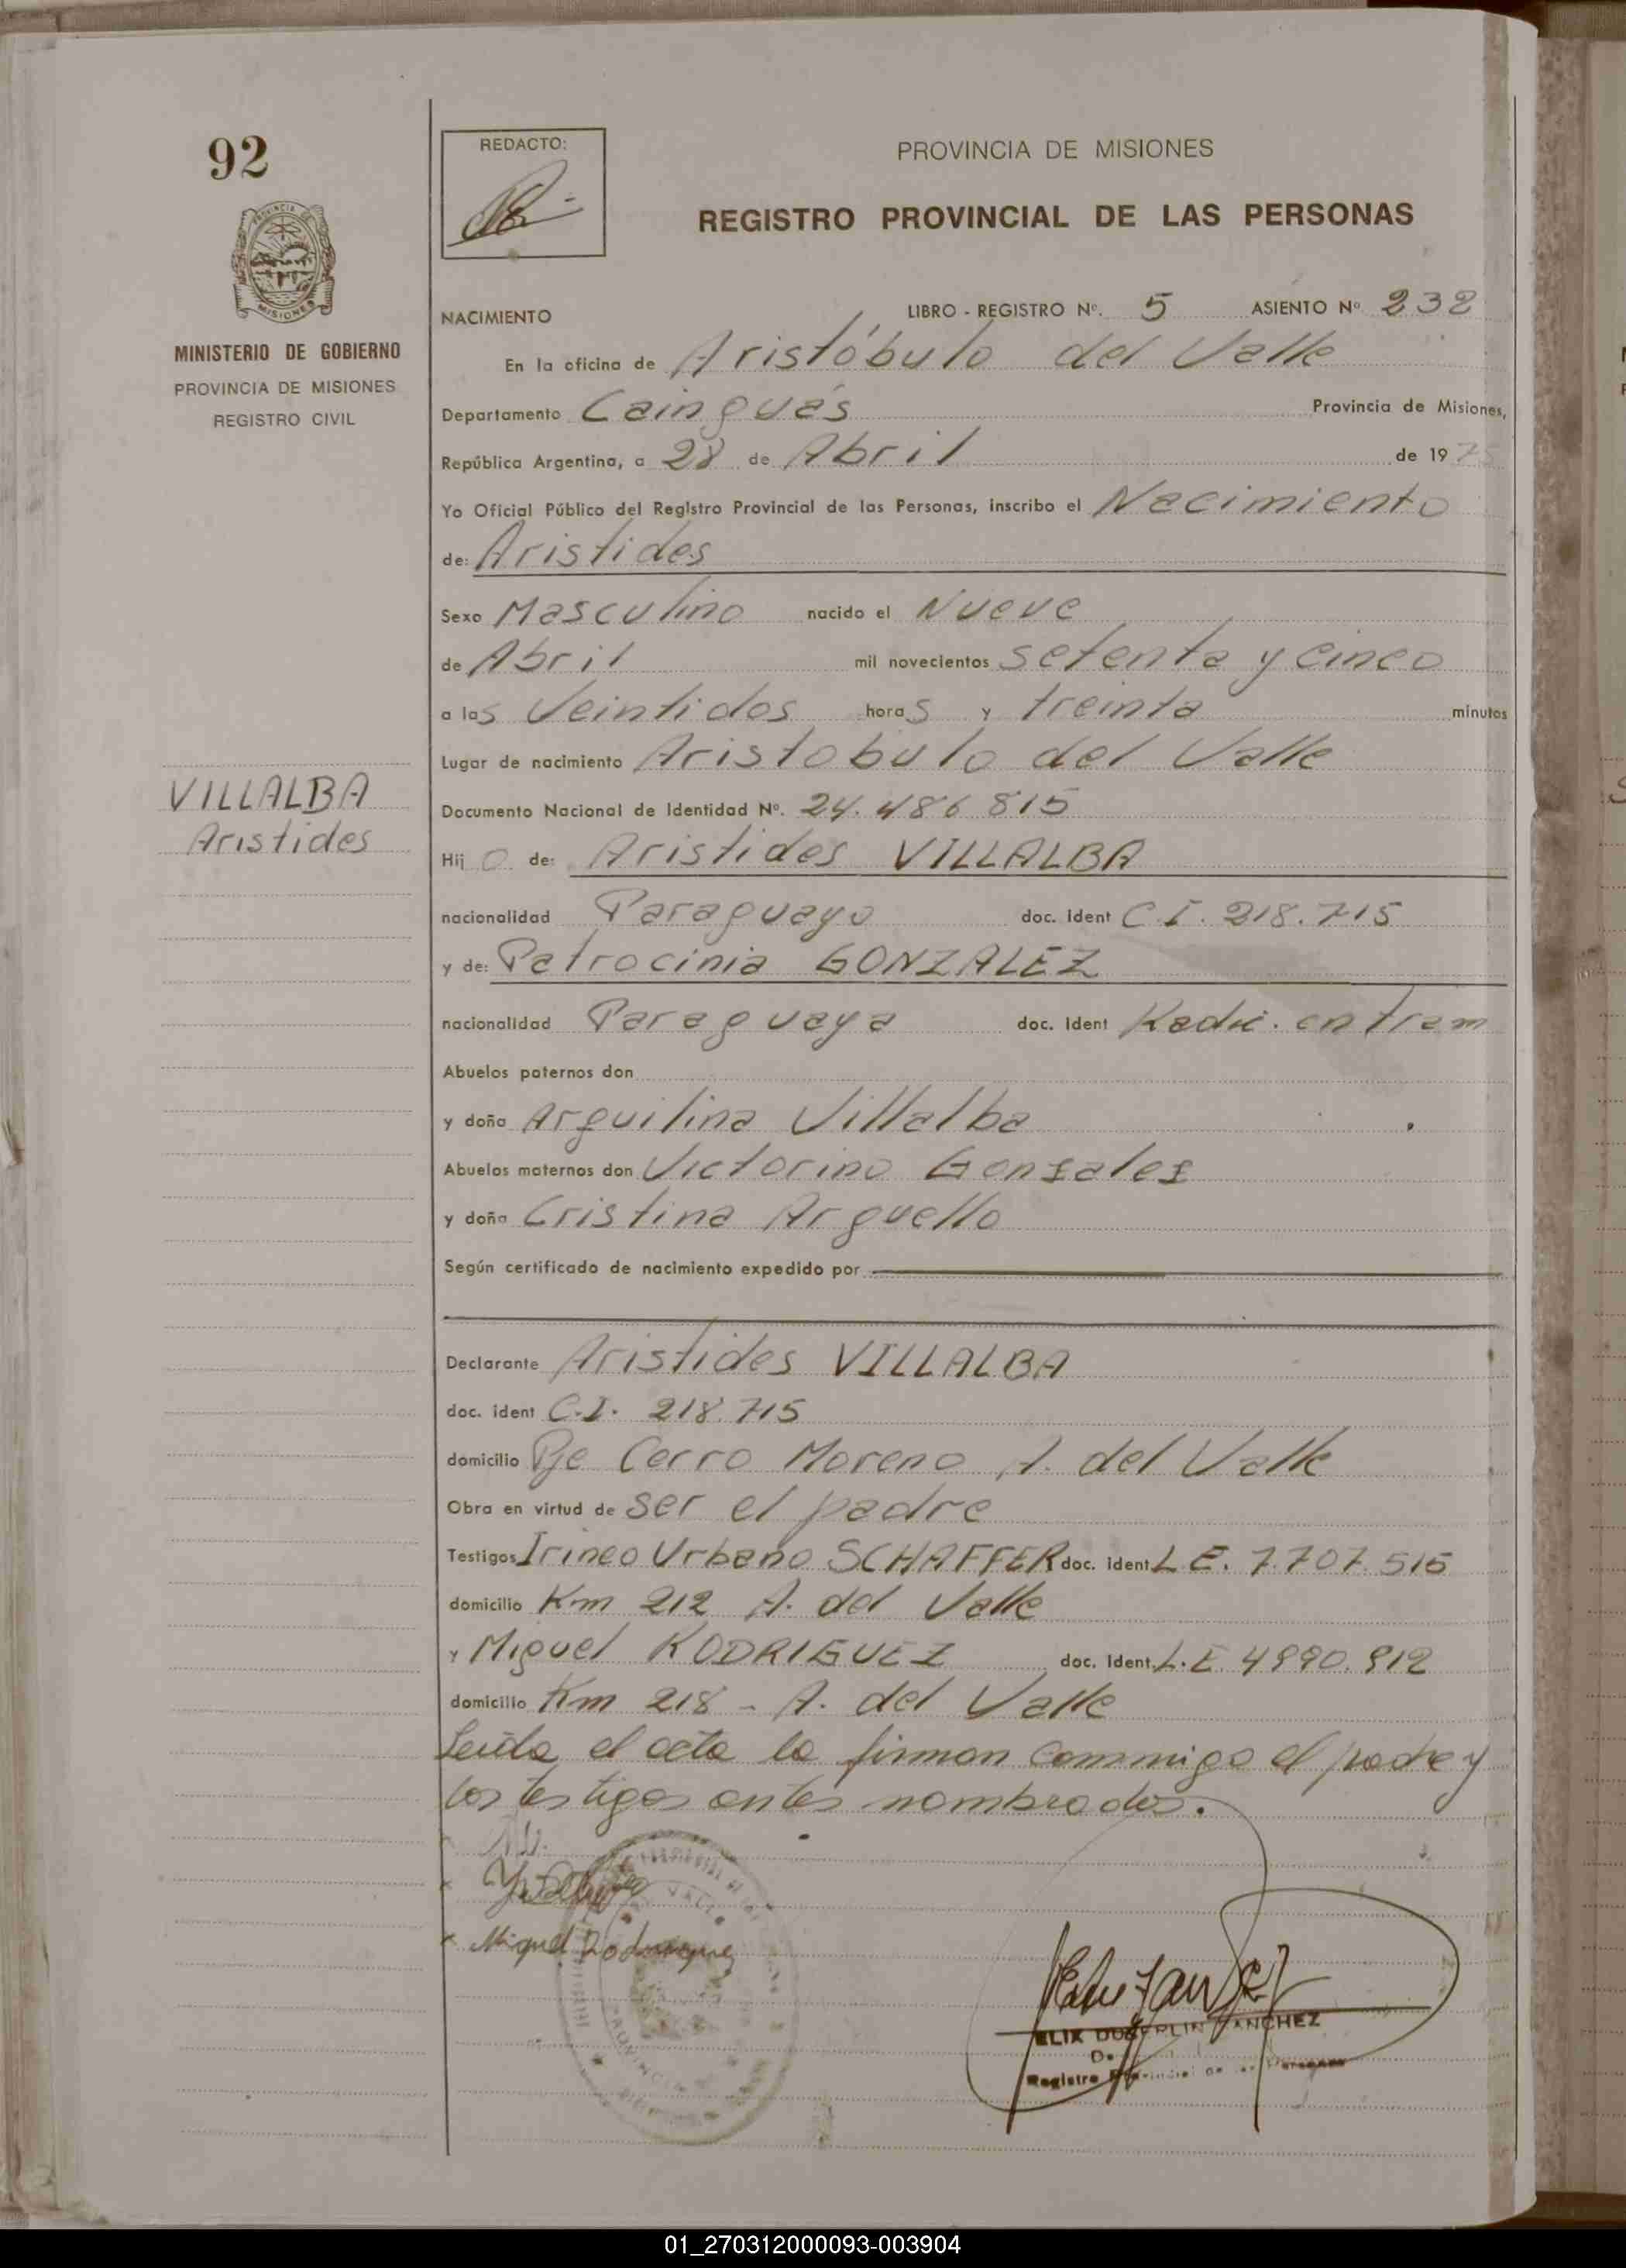 92
REDACTO:
PROVINCIA DE MISIONES
REGISTRO PROVINCIAL DE LAS PERSONAS
PROVINCIA DE
MISIONES
MINISTERIO DE GOBIERNO
PROVINCIA DE MISIONES
REGISTRO CIVIL
NACIMIENTO LIBRO - REGISTRO Nº. 5 ASIENTO Nº 232
En la oficina de Aristóbulo del Valle
Departamento Cainguás Provincia de Misiones,
República Argentina, a 28 de Abril de 1975
Yo Oficial Público del Registro Provincial de las Personas, inscribo el Nacimiento
de: Aristides
Sexo Masculino nacido el Nueve
de Abril mil novecientos setenta y cinco
a las Veintidos horas y treinta minutos
Lugar de nacimiento Aristobulo del Valle
VILLALBA
Aristides
Documento Nacional de Identidad Nº. 24.486815
Hijo de: Aristides VILLALBA
nacionalidad Paraguayo doc. ident C.I. 218.715
y de: Patrocinia GONZALEZ
nacionalidad Paraguaya doc. Ident Radic. en tram
Abuelos paternos don
y doña Arquilina Villalba
Abuelos maternos don Victorino Gonzalez
y doña Cristina Arguello
Según certificado de nacimiento expedido por
Declarante Aristides VILLALBA
doc. ident C.I. 218.715
domicilio Pje Cerro Moreno A. del Valle
Obra en virtud de ser el padre
Testigos Irineo Urbano SCHAFFER doc. ident L E. 7.707.515
domicilio Km 212 A. del Valle
y Miguel RODRIGUEZ doc. Ident. L.E. 4990.912
domicilio Km 218 - A. del Valle
Leída el acta la firman conmmigo el padre y
los testigos antes nombrados.
Miguel Rodriguez
ELIX DUBERLIN SANCHEZ
Registro Provincial de las Personas
01_270312000093-003904